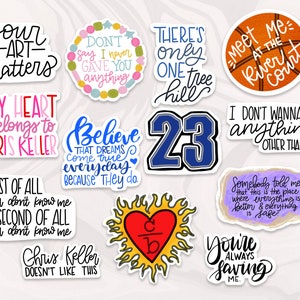 our
-ART-
matters
DON'T
say I never
GAVE YOU
anything
THERE'S
only
ONE tree
hill
MEET ME
AT THE
River
Court
MY HEART
belongs to
CHRIS KELLER
Believe
THAT DREAMS
come true
everyday
BECAUSE THEY do
23
I DON'T WANNA
anything
OTHER THA
ST OF ALL
don't know me
SECOND OF ALL
don't know me
Somebody told me
that this is the place
where everything's
better & everything
is safe
Chris Keller
DOESN'T LIKE THIS
a
b
You're
ALWAYS
saving
ME.